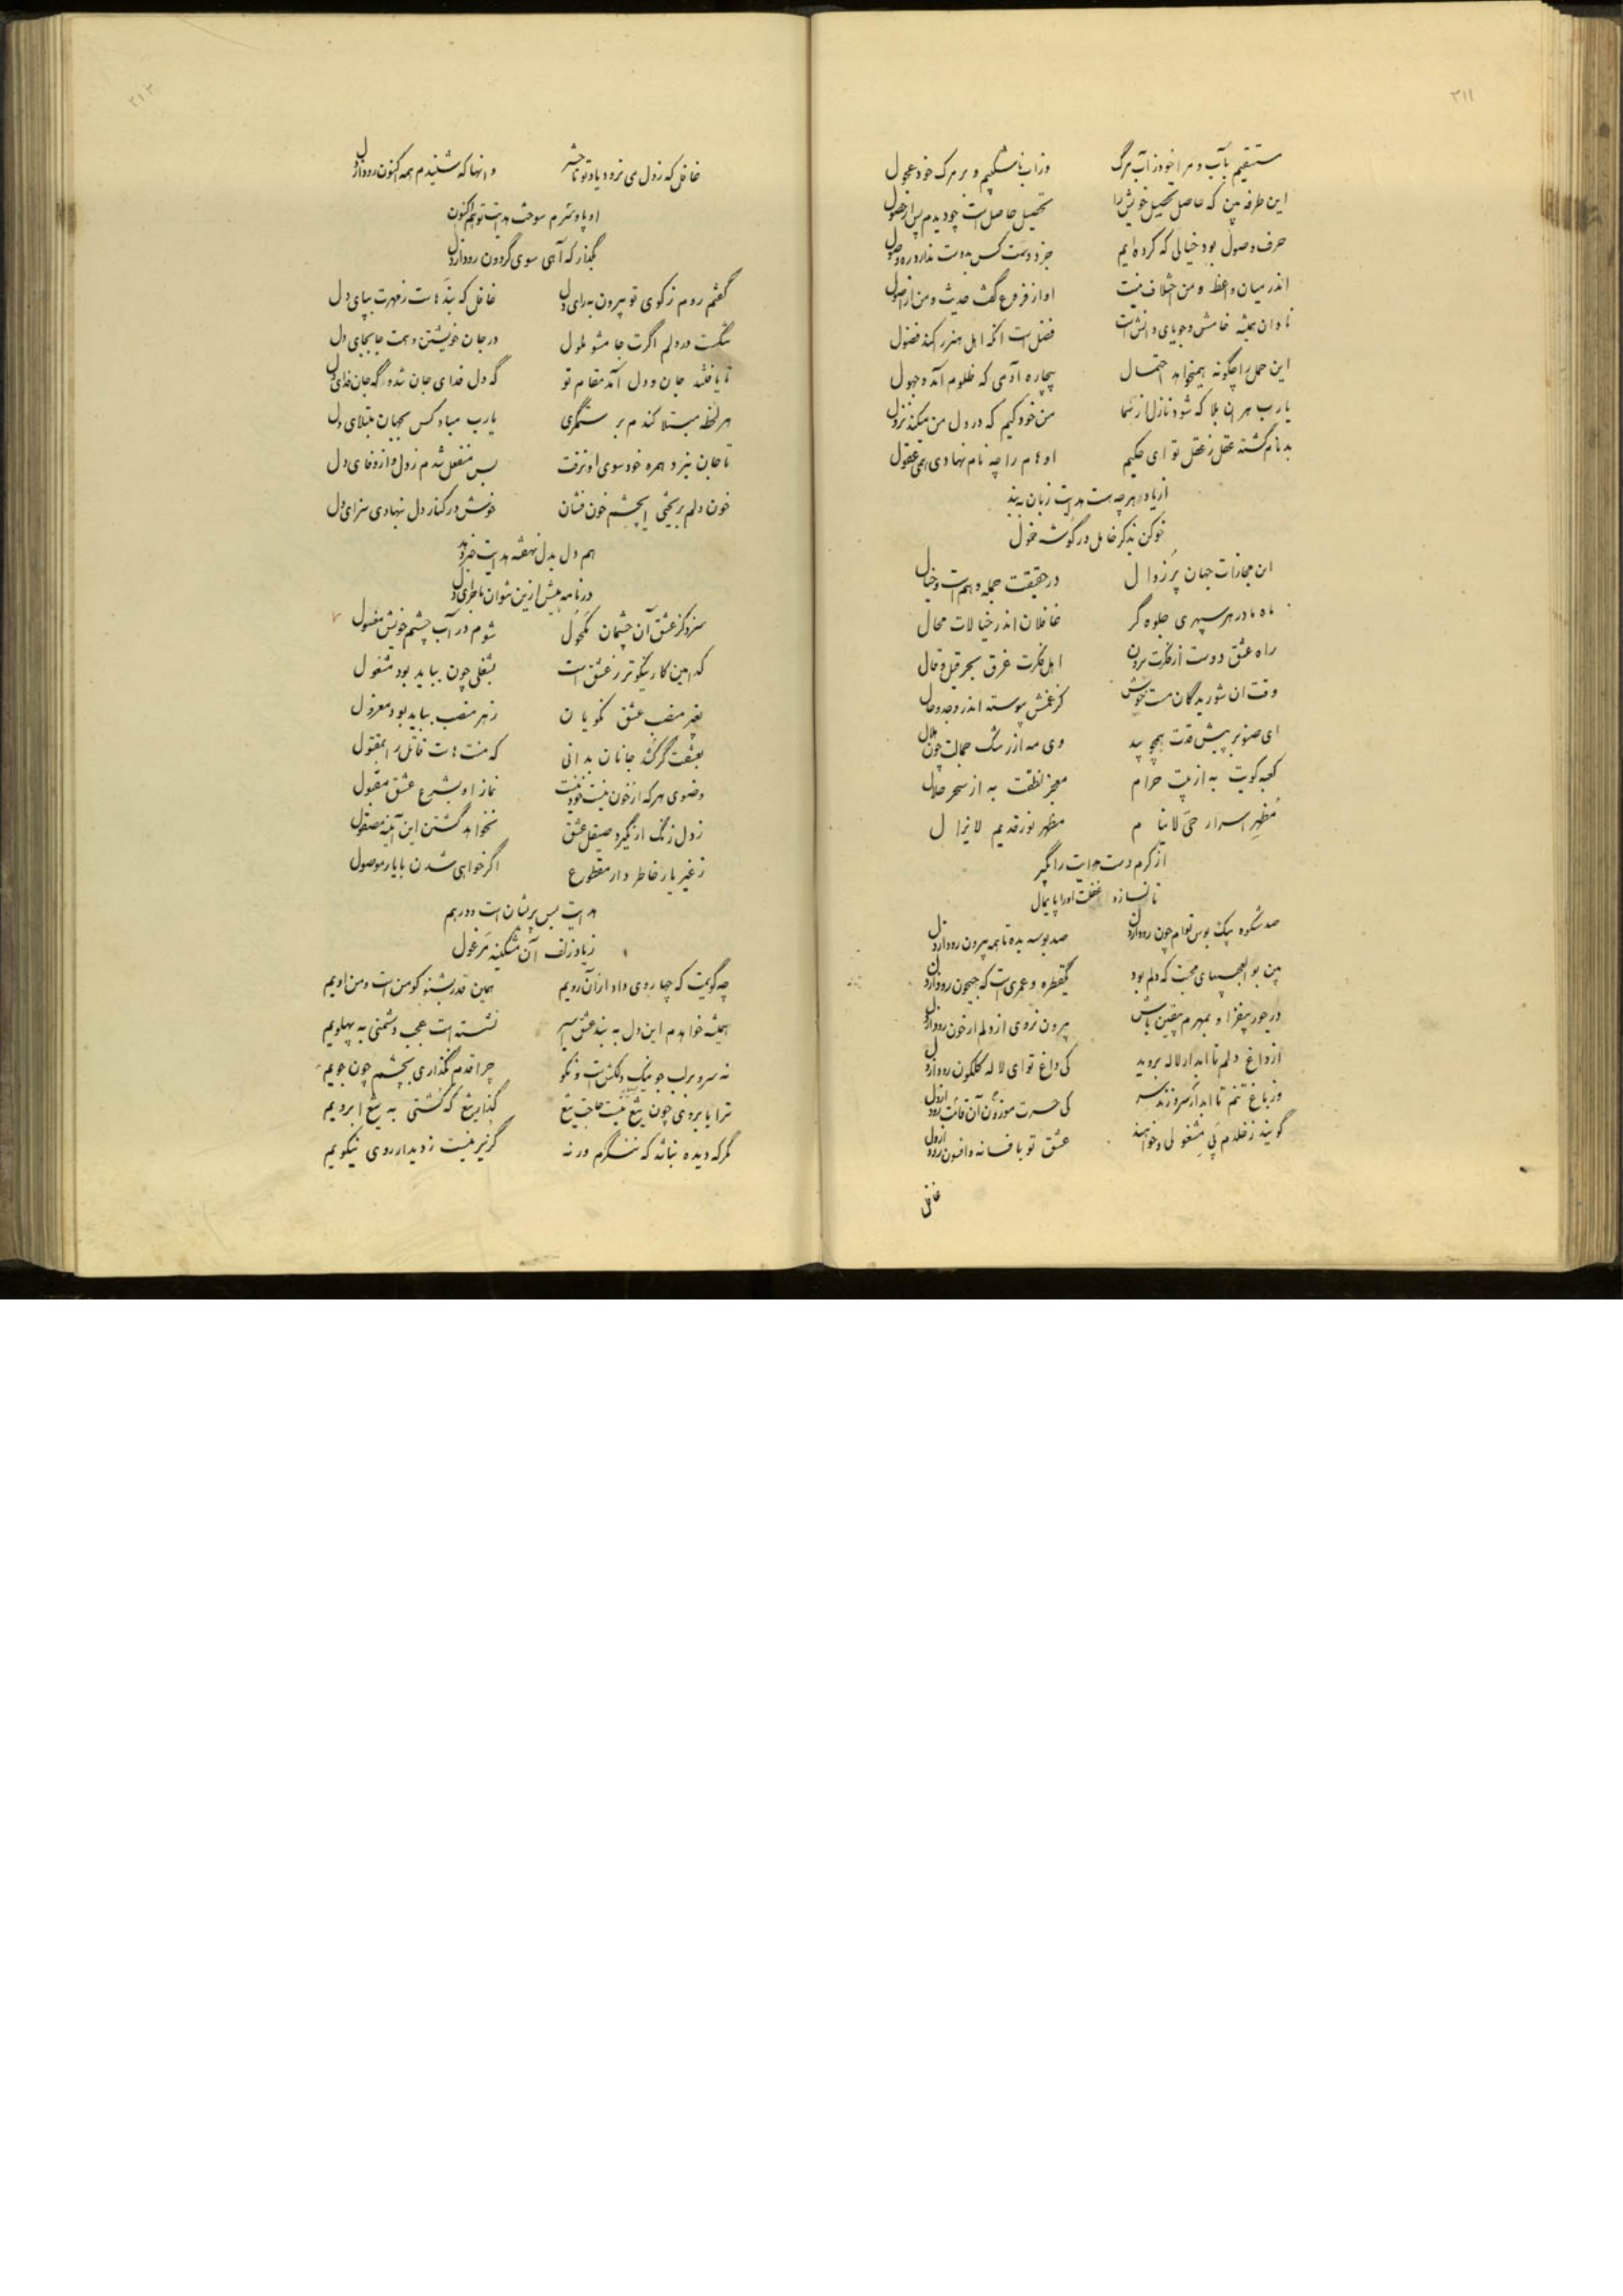 ٣١١
مستسقیم بآب و مرا خود ز آب مرگ وز آب ناشکیبم و بر مرگ خود عجول
این طرفه بین که حاصل تحصیل خویش را تحصیل حاصل است چو دیدم پس از حصول
حرف وصول بود خیالی که کرده‌ایم جز دوست کس بدوست ندارد ره وصول
اندر میان واعظ و من اختلاف نیست او از فروع گفت حدیث و من از اصول
نادان همیشه خامش و جویای دانش است فضل است آنکه اهل هنر را کند فضول
این حمل را چگونه همیخواهد احتمال بیچاره آدمی که ظلوم آمد و جهول
یا رب هر آن بلا که شود نازل از سما من خود کیم که در دل من میکند نزول
بدنام گشته عقل ز عقل تو ای حکیم اوهام را چه نام نهادی همی عقول
از یاد هر چه هست هدایت زبان ببند
خو کن بذکر خامل در گوشه خمول
این مجازات جهان پر زوال در حقیقت جمله وهم است و خیال
ماه ما در هر سپهری جلوه گر غافلان اندر خیالات محال
راه عشق دوست از فکرت برون اهل فکرت غرق بحر قیل و قال
وقت آن شوریدگان مست خوش کز غمش پیوسته اندر وجد و حال
ای صنوبر پیش قدت همچو بید وی مه از رشک جمالت چون هلال
کعبه کویت به از بیت حرام معجز نطقت به از سحر حلال
مظهر اسرار حی لاینام مظهر نور قدیم لایزال
از کرم دست هدایت را بگیر
تا نسازد غفلت او را پایمال
صد شکوه بیک بوس توام چون رود از دل صد بوسه بده تا همه بیرون رود از دل
بین بوالعجبیهای محبت که دلم بود یکقطره و عمری است که جیحون رود از دل
در جور بیفزا و بمهرم یقین باش بیرون نروی از دلم ار خون رود از دل
از داغ دلم تا ابد ار لاله بروید کی داغ تو ای لاله گلگون رود از دل
وز باغ تنم تا ابد ار سرو زند سر کی حسرت موزون آن قامت رود از دل
گویند ز خلدم پی مشغولی و خواهند عشق تو بافسانه و افسون رود از دل
غافل
٣١٢
غافل که ز دل می نرود یاد تو تا حشر و انها که شنیدم همه اکنون رود از دل
او پا و سرم سوخت هدایت تو هم اکنون
بگذار که آهی سوی گردون رود از دل
گفتم روم ز کوی تو بیرون به رای دل غافل که بندهاست ز مهرت بپای دل
تنگست در دلم اگرت جا مشو ملول در جان خویشتن دهمت جا بجای دل
تا یافتند جان و دل آمد مقام تو گه دل فدای جان شد و گه جان فدای دل
هر لحظه مبتلا کندم بر ستمگری یارب مباد کس بجهان مبتلای دل
تا جان نبرد همره خود سوی او نرفت بس منفعل شدم ز دل و از وفای دل
خون دلم بریختی ای چشم خون فشان خوش در کنار دل نهادی سزای دل
هم دل بدل نهفته هدایت خبر دهد
در نامه بیش ازین نتوان ماجرای دل
سزد کز عشق آن چشمان مکحول شوم در آب چشم خویش مغسول
کدامین کار نیکوتر ز عشق است بشغلی چون بباید بود مشغول
بغیر منصب عشق نکویان ز هر منصب بباید بود معزول
بعشقت گر کشد جانان بدانی که منتهاست قاتل را بمقتول
وضوی هر که از خون نیست خود نیست نماز او بشرع عشق مقبول
ز دل زنگ ار نگیرد صیقل عشق نخواهد گشتن این آیینه مصقول
ز غیر یار خاطر دار مقطوع اگر خواهی شدن با یار موصول
هدایت بس پریشان است و درهم
ز یاد زلف آن مشکینه مرغول
چه گویمت که چها روی داد از آن رویم همین قدر بشنو کو من است و من اویم
همیشه خواهدم این دل به بند عشق اسیر نشسته است عجب دشمنی به پهلویم
نه سرو بر لب جو نیک دلکش است و نکو چرا قدم نگذاری بچشم چون جویم
ترا با بروی چون تیغ نیست حاجت تیغ گذار تیغ که کشتی به تیغ ابرویم
مگر که دیده نباشد که ننگرم ورنه گزیر نیست ز دیدار روی نیکویم